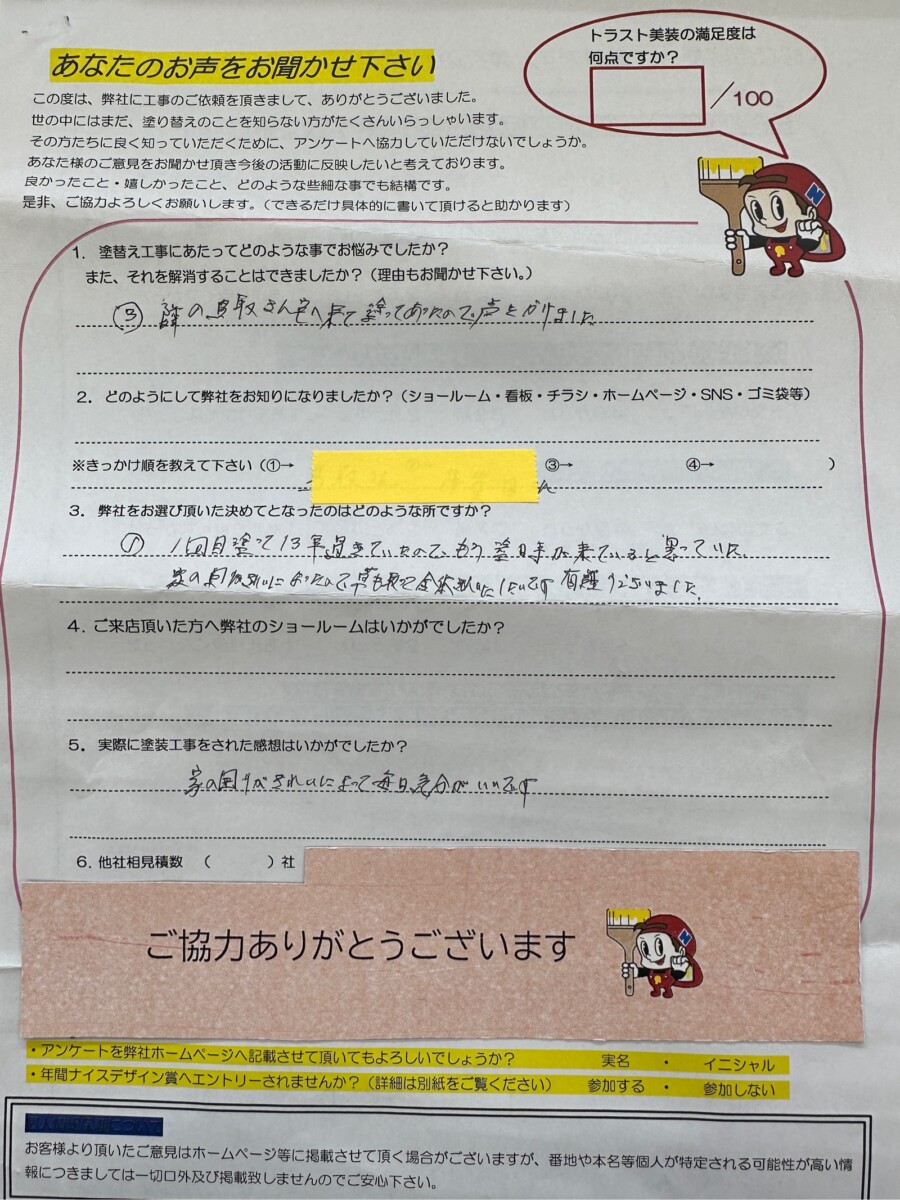 あなたのお声をお聞かせ下さい
トラスト美装の満足度は
何点ですか?
/100
この度は、弊社に工事のご依頼を頂きまして、ありがとうございました。
世の中にはまだ、塗り替えのことを知らない方がたくさんいらっしゃいます。
その方たちに良く知っていただくために、アンケートへ協力していただけないでしょうか。
あなた様のご意見をお聞かせ頂き今後の活動に反映したいと考えております。
良かったこと・嬉しかったこと、どのような些細な事でも結構です。
是非、ご協力よろしくお願いします。(できるだけ具体的に書いて頂けると助かります)
N
1. 塗替え工事にあたってどのような事でお悩みでしたか?
また、それを解消することはできましたか?(理由もお聞かせ下さい。)
③ 隣の鳥取さん宅へ来て塗ってあったので声をかけました
2. どのようにして弊社をお知りになりましたか?(ショールーム・看板・チラシ・ホームページ・SNS・ゴミ袋等)
※きっかけ順を教えて下さい(①→ ③→ ④→ )
3. 弊社をお選び頂いた決めてとなったのはどのような所ですか?
① 1回目塗って13年過ぎていたのでもう塗る時が来ていると思っていた
家の回りがきれいになったので 全体きれいにしたいです 有難うございました。
4. ご来店頂いた方へ弊社のショールームはいかがでしたか?
5. 実際に塗装工事をされた感想はいかがでしたか?
家の囲りがきれいによって毎日気分がいいです
6. 他社相見積数 ( )社
ご協力ありがとうございます
N
・アンケートを弊社ホームページへ記載させて頂いてもよろしいでしょうか? 実名 ・ イニシャル
・年間ナイスデザイン賞へエントリーされませんか?(詳細は別紙をご覧ください) 参加する ・ 参加しない
お客様より頂いたご意見はホームページ等に掲載させて頂く場合がございますが、番地や本名等個人が特定される可能性が高い情
報につきましては一切口外及び掲載致しませんのでご安心下さい。